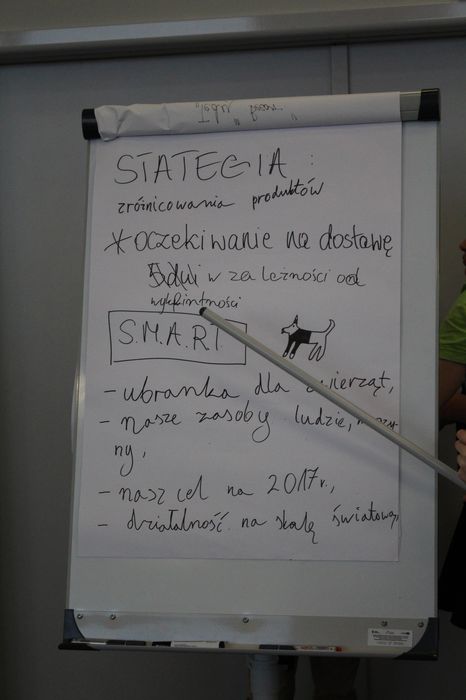 STATEGIA :
zróżnicowania produktów
* oczekiwanie na dostawę
w zależności od
S.M.A.R.T
- ubranka dla zwierząt,
- nasze zasoby ludzie,
ny,
- nasz cel na 2017 r.,
- działalność na skalę światową,